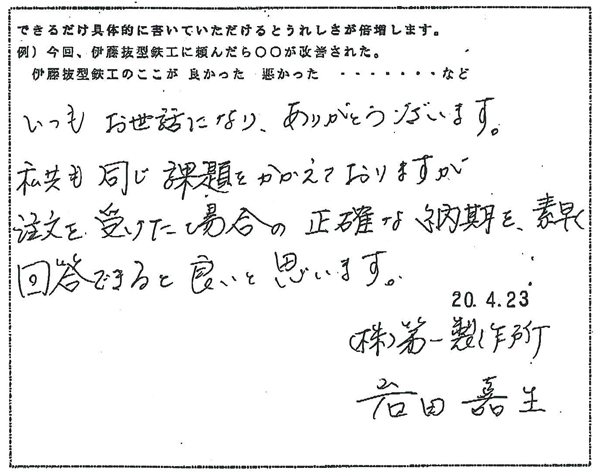 できるだけ具体的に書いていただけるとうれしさが倍増します。
例）今回、伊藤抜型鉄工に頼んだら〇〇が改善された。
伊藤抜型鉄工のここが 良かった 悪かった ・・・・・・・など
いつも お世話になり、ありがとうございます。
私共も 同じ 課題を かかえて おりますが
注文を 受けた 場合の 正確な 納期を、素早く
回答できると 良いと 思います。
20.4.23
(株)第一製作所
岩田 嘉生